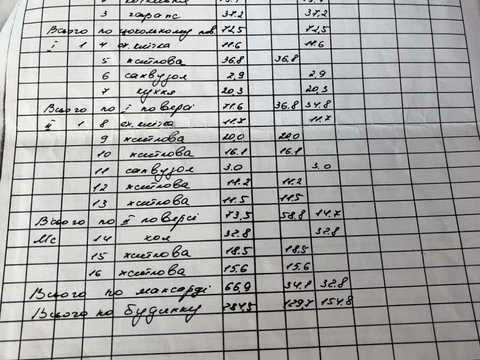 3 гараж 37,2 37,2
Всього по цокольному пов. 72,5 72,5
I 1 4 сх.клітка 11.6 11.6
5 житлова 36,8 36,8
6 санвузол 2,9 2,9
7 кухня 20,3 20,3
Всього по I поверсі 71.6 36,8 34.8
II 1 8 сх.клітка 11.7 11.7
9 житлова 20,0 20,0
10 житлова 16.1 16.1
11 санвузол 3.0 3.0
12 житлова 11.2 11.2
13 житлова 11.5 11.5
Всього по II поверсі 73,5 58.8 14.7
Мс 14 хол 32.8 32.8
15 житлова 18.5 18.5
16 житлова 15.6 15.6
Всього по мансарді 66,9 34.1 32.8
Всього по будинку 284,5 129,7 154,8